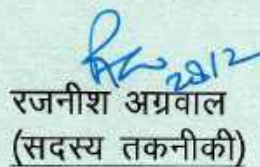 28/12
रजनीश अग्रवाल
(सदस्य तकनीकी)